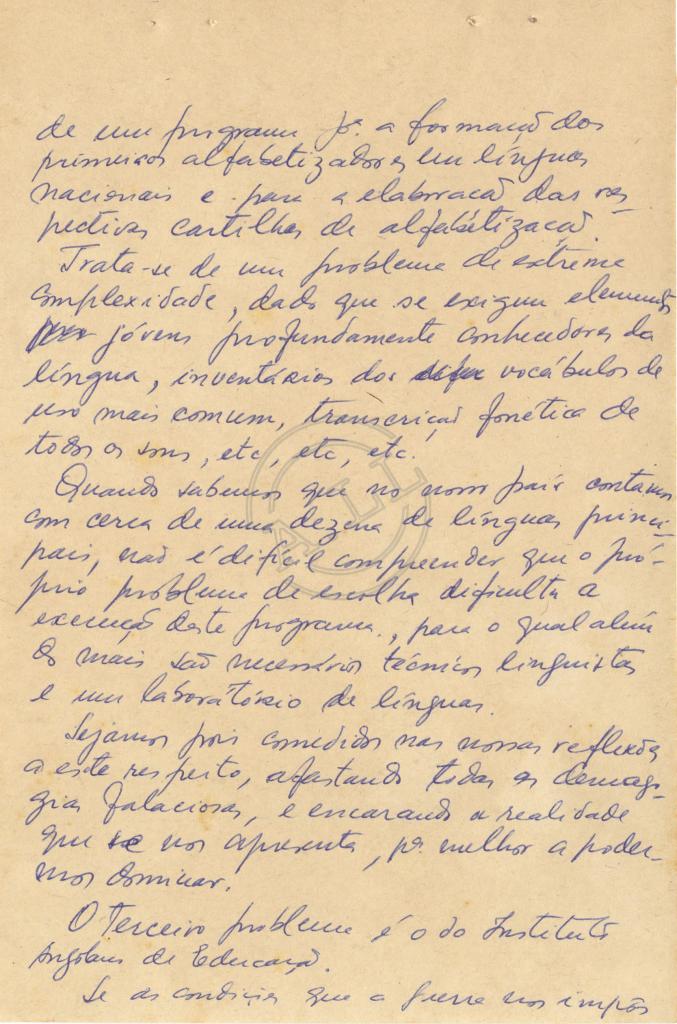 de um programa pª. a formaçaõ dos
primeiros alfabetizadores em línguas
nacionais e para a elaboraçaõ das res-
pectivas cartilhas de alfabétizaçaõ.
Trata-se de um problema de extrema
complexidade, dado que se exigem elementos
jóvens profundamente conhecedores da
língua, inventários dos vocábulos de
uso mais comum, transcriçaõ fonética de
todos os sons, etc, etc, etc.
Quando sabemos que no nosso país contamos
com cerca de uma dezena de línguas princi-
pais, naõ é difícil compreender que o pró-
prio problema de escolha dificulta a
execuçaõ deste programa, para o qual além
do mais saõ necessários técnicos linguistas
e um laboratório de línguas.
Sejamos pois comedidos nas nossas reflexões
a este respeito, afastando todas as demago-
gias falaciosas, e encarando a realidade
que se nos apresenta, pª melhor a poder-
mos dominar.
O Terceiro problema é o do Instituto
Angolano de Educaçaõ.
Se as condições que a guerra nos impôs
ATD